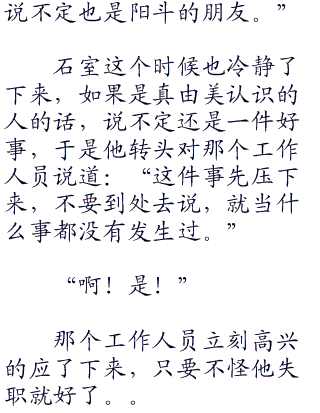 说不定也是阳斗的朋友。”
石室这个时候也冷静了
下来，如果是真由美认识的
人的话，说不定还是一件好
事，于是他转头对那个工作
人员说道：“这件事先压下
来，不要到处去说，就当什
么事都没有发生过。”
“啊！是！”
那个工作人员立刻高兴
的应了下来，只要不怪他失
职就好了。。